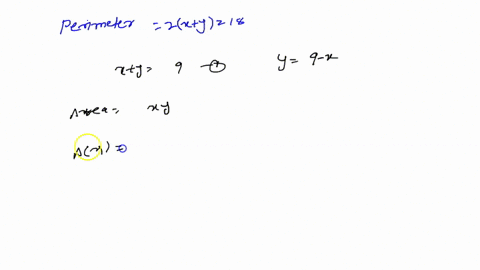 Perimeter = 2(x+y) = 18
x+y = 9 y = 9-x
Area = xy
A(x) =